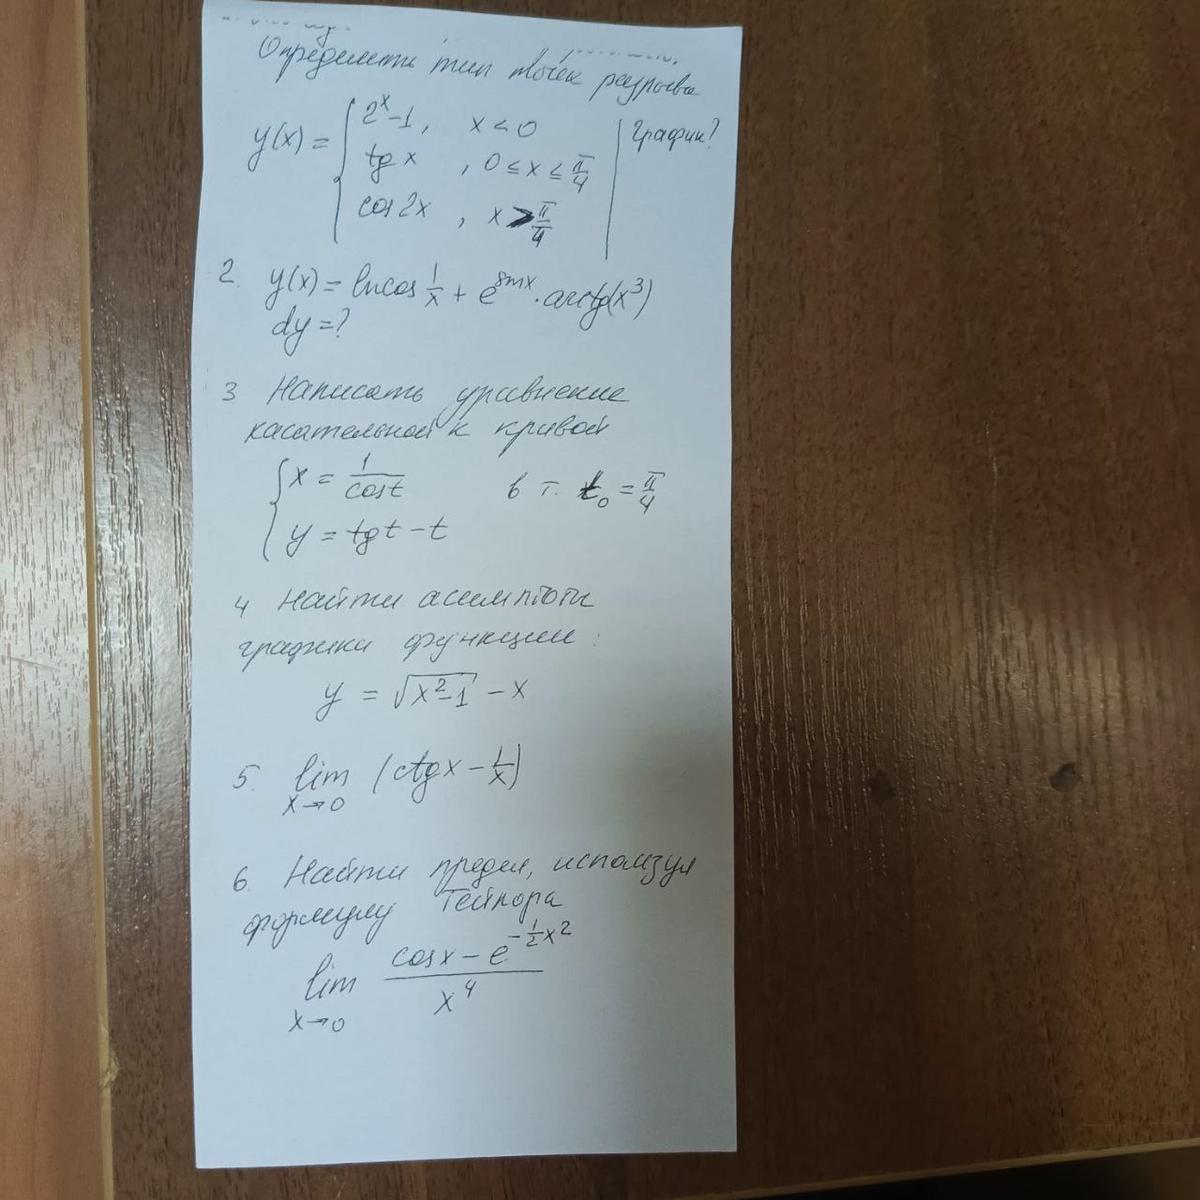 Определить тип точек разрыва
y(x) = { 2^x - 1, x < 0 | График?
tg x, 0 ≤ x ≤ π/4
cos 2x, x > π/4
2. y(x) = ln cos 1/x + e^{sin x} · arctg(x^3)
dy = ?
3 Написать уравнение
касательной к кривой
{ x = 1/cos t в т. t_0 = π/4
y = tg t - t
4 Найти асимптоты
графика функции:
y = √(x^2 - 1) - x
5. lim x→0 (ctg x - 1/x)
6. Найти предел, используя
формулу Тейлора
lim x→0 (cos x - e^{-1/2 x^2}) / x^4